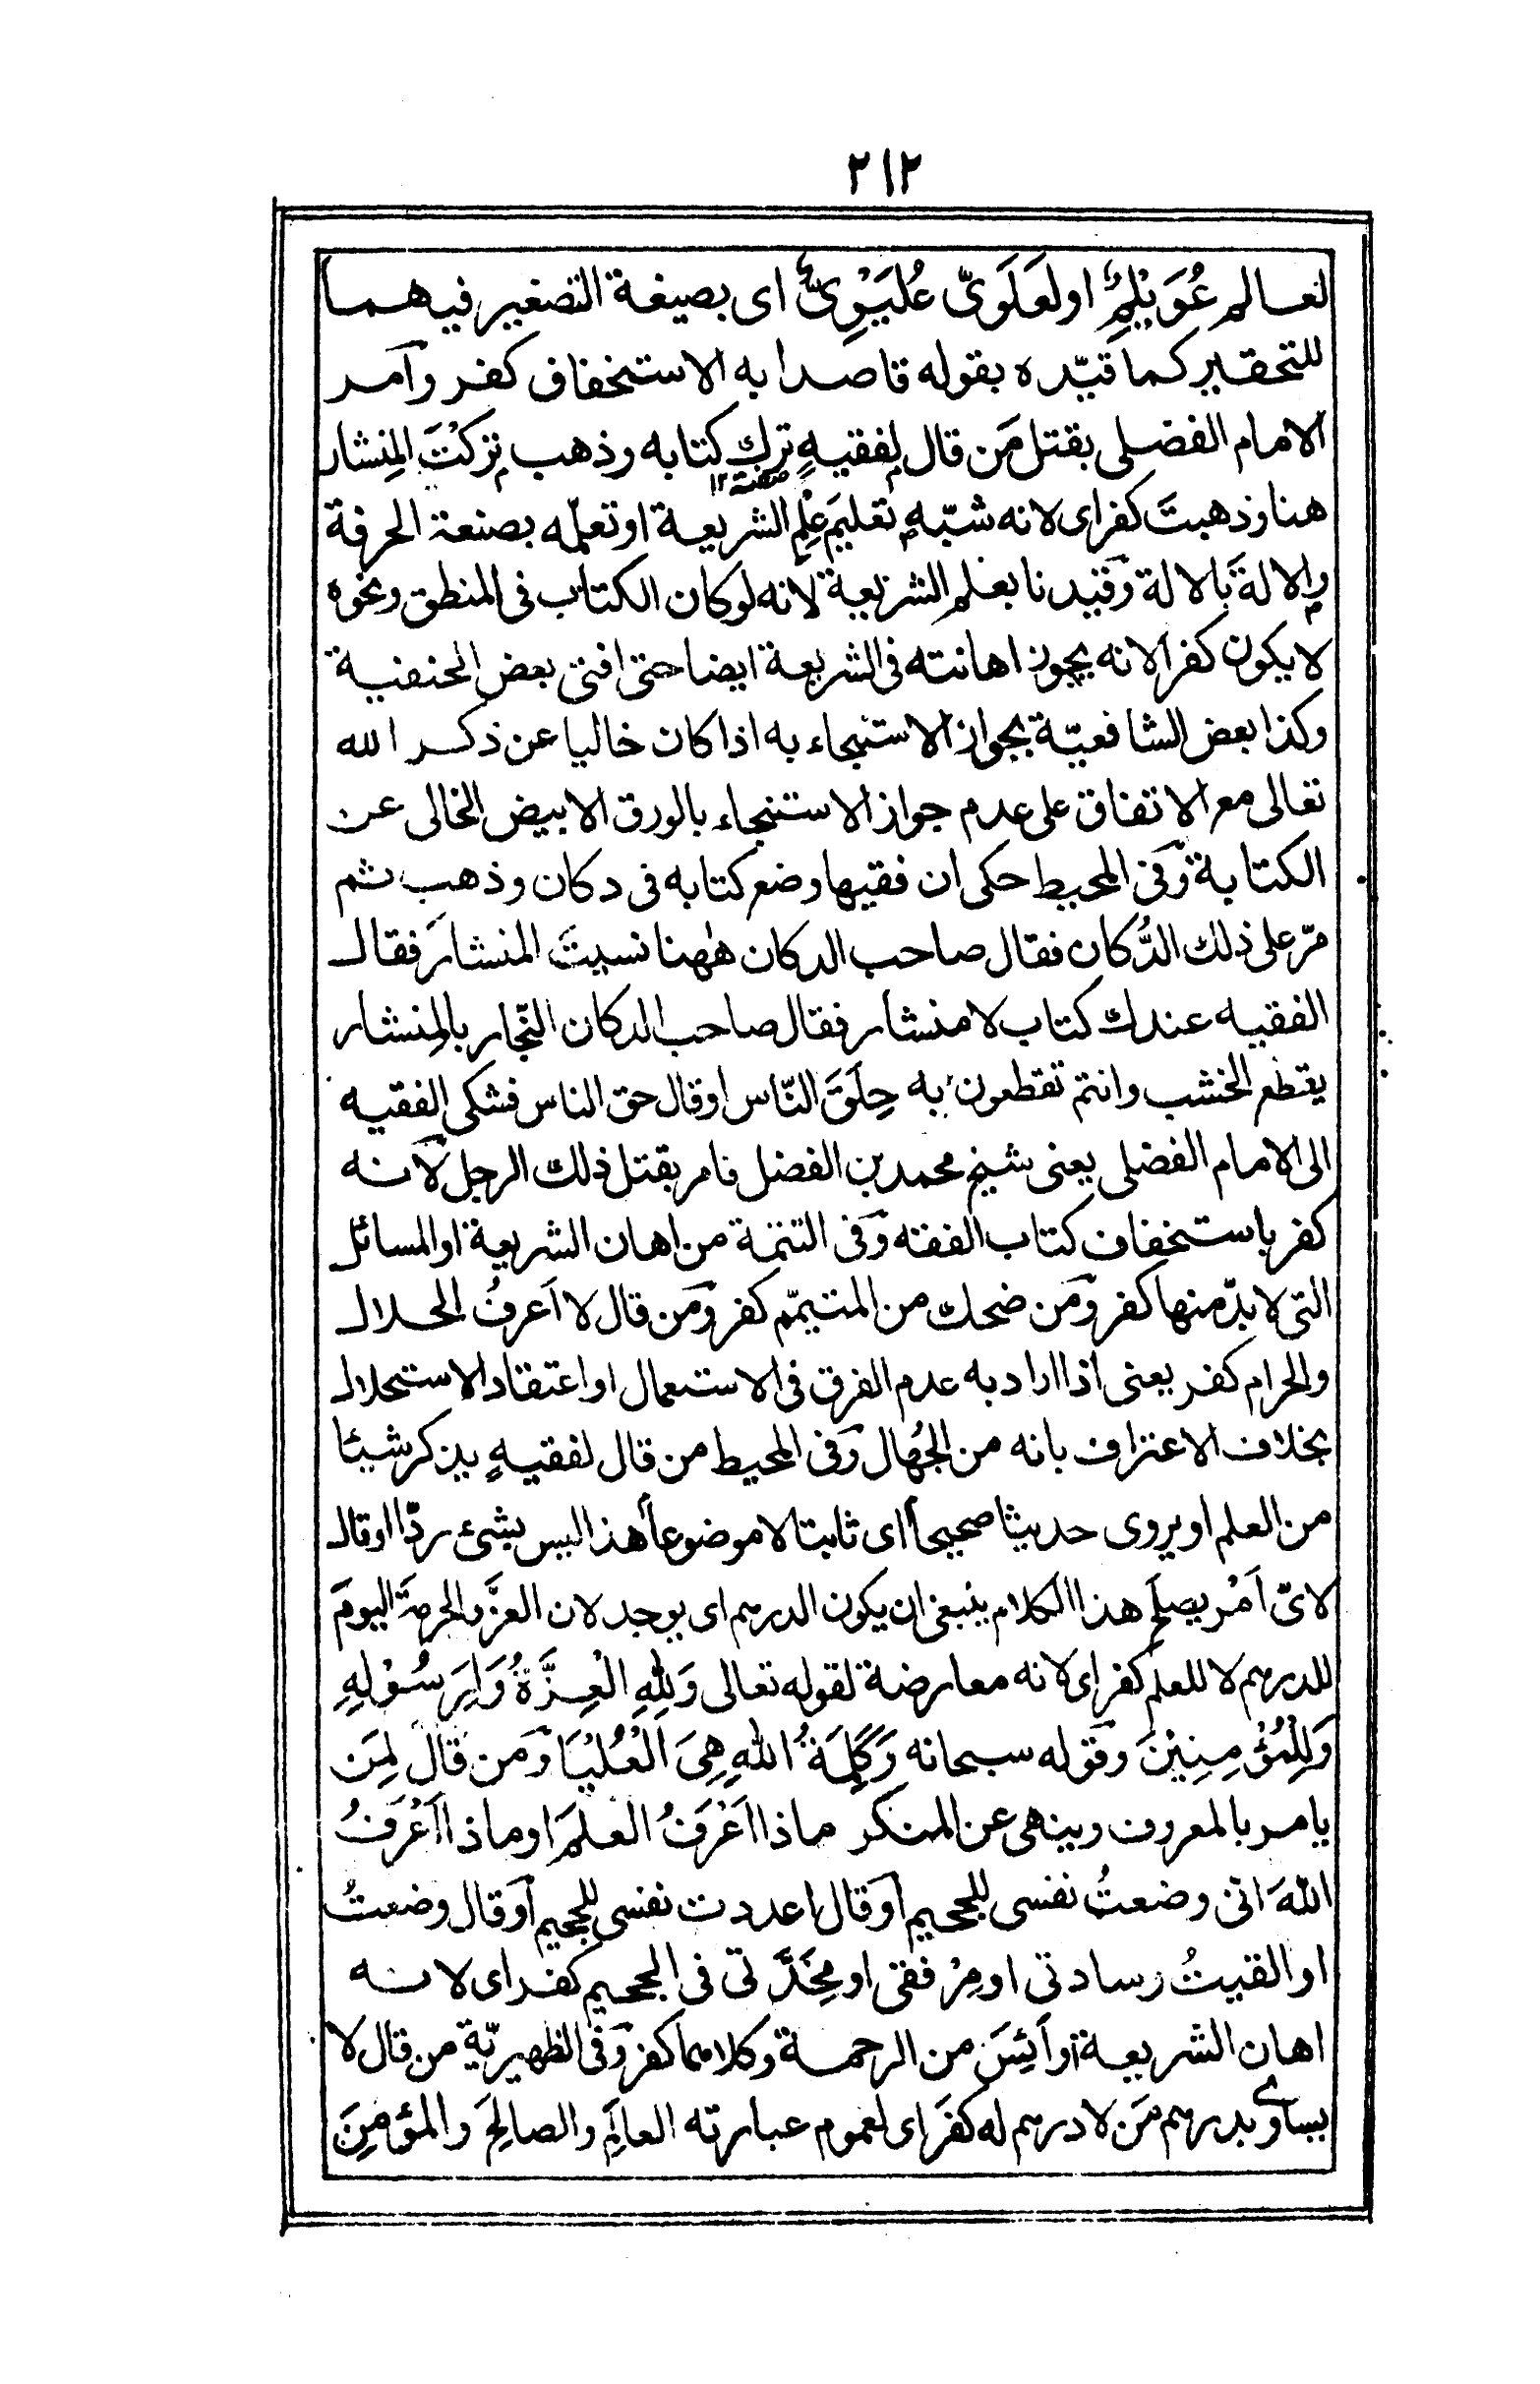 ٢١٢
لعالم عُوَيْلِمٌ او لعَلَوِىّ عُلَيْوِىٌّ اى بصيغة التصغير فيهما
للتحقير كما قيّده بقوله قاصدا به الاستخفاف كفر وآمر
الامام الفضلى بقتل مَن قال لفقيهٍ ترك كتابه وذهب تركْتَ المِنشار
صفة ١٢
هنا وذهبتَ كفر اى لانه شبّه تعليمَ عِلمِ الشريعة او تعلّمه بصنعة الحرفة
والالةَ بالالة وقيدنا بعلم الشريعة لانه لو كان الكتاب فى المنطق ونحوه
لا يكون كفرا لانه يجوز اهانته فى الشريعة ايضا حتى افتى بعض الحنفية
وكذا بعض الشافعيّة بجواز الاستنجاء به اذا كان خاليا عن ذكر الله
تعالى مع الاتفاق على عدم جواز الاستنجاء بالورق الابيض الخالى عن
الكتابة وفى المحيط حكى ان فقيها وضع كتابه فى دكان وذهب ثم
مرّ على ذلك الدُّكان فقال صاحب الدكان هٰهنا نسيتَ المنشارَ فقال
الفقيه عندك كتاب لا منشار فقال صاحب الدكان النّجار بالمِنشار
يقطع الخشب وانتم تقطعون به حِلَقَ النّاس او قال حق الناس فشكى الفقيه
الى الامام الفضلى يعنى شيخ محمد بن الفضل فامر بقتل ذلك الرجل لانه
كفر باستخفاف كتاب الفقه وفى التتمة من اهان الشريعة او المسائل
التى لا بدّ منها كفر ومَن ضحك من المتيمّم كفر ومَن قال لا اَعرفُ الحلال
والحرام كفر يعنى اذا اراد به عدم الفرق فى الاستعمال او اعتقاد الاستحلال
بخلاف الاعتراف بانه من الجُهال وفى المحيط من قال لفقيهٍ يذكر شيئا
من العلم او يروى حديثا صحيحاً اى ثابتا لا موضوعاً هذا ليس بشئ ردّا او قال
لاىّ اَمْر يصلح هذا الكلام ينبغى ان يكون الدرهم اى يوجد لان العزّ والحرمةَ اليومَ
للدرهم لا للعلم كفر اى لانه معارضة لقوله تعالى وَلِلهِ الْعِزَّةُ وَلِرَسُوْلِهِ
وَلِلْمُؤْمِنِيْنَ وقوله سبحانه وَكَلِمَةُ اللهِ هِىَ الْعُلْيَا ومَن قال لِمَن
يامر بالمعروف وينهى عن المنكر ماذا اَعْرَفُ العلمَ او ماذا اَعْرَفُ
اللهَ انى وضعتُ نفسى للجحيم اَو قال اعددت نفسى للجحيم اَو قال وضعتُ
او القيتُ وسادتى او مِرْفقتى او مِخَدَّتى فى الجحيم كفر اى لانه
اهان الشريعة اَو اَئِسَ من الرحمة وكلاهما كفر وفى الظهيريّة من قال لا
يساوى بدرهم مَن لا درهم له كفَر اى لعموم عبارته العالِمَ والصالِحَ والمؤمِنَ